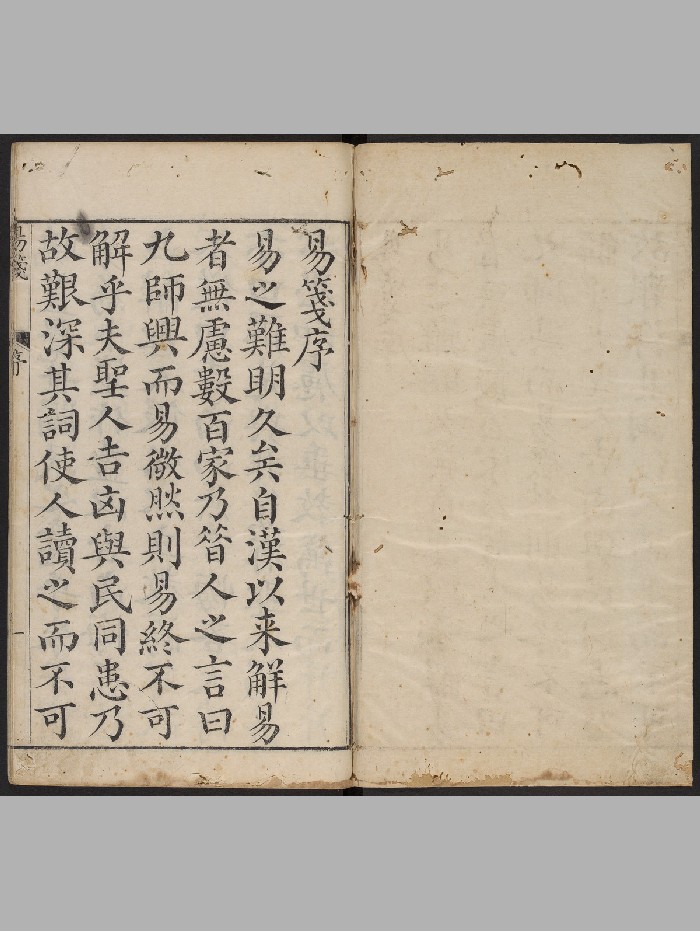 易箋序
易之難明久矣自漢以来解易
者無慮數百家乃昝人之言曰
九師興而易微然則易終不可
解乎夫聖人吉凶與民同患乃
故艱深其詞使人讀之而不可
易箋
序
一